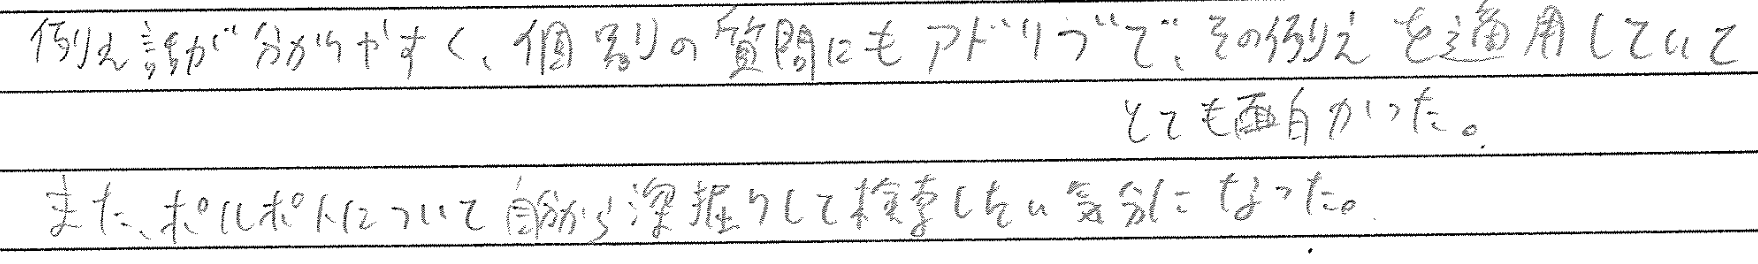 例え話が分かりやすく、個別の質問にもアドリブで、その例えを適用していて
とても面白かった。
また、ポルポトについて自分から深掘りして検索したい気分になった。